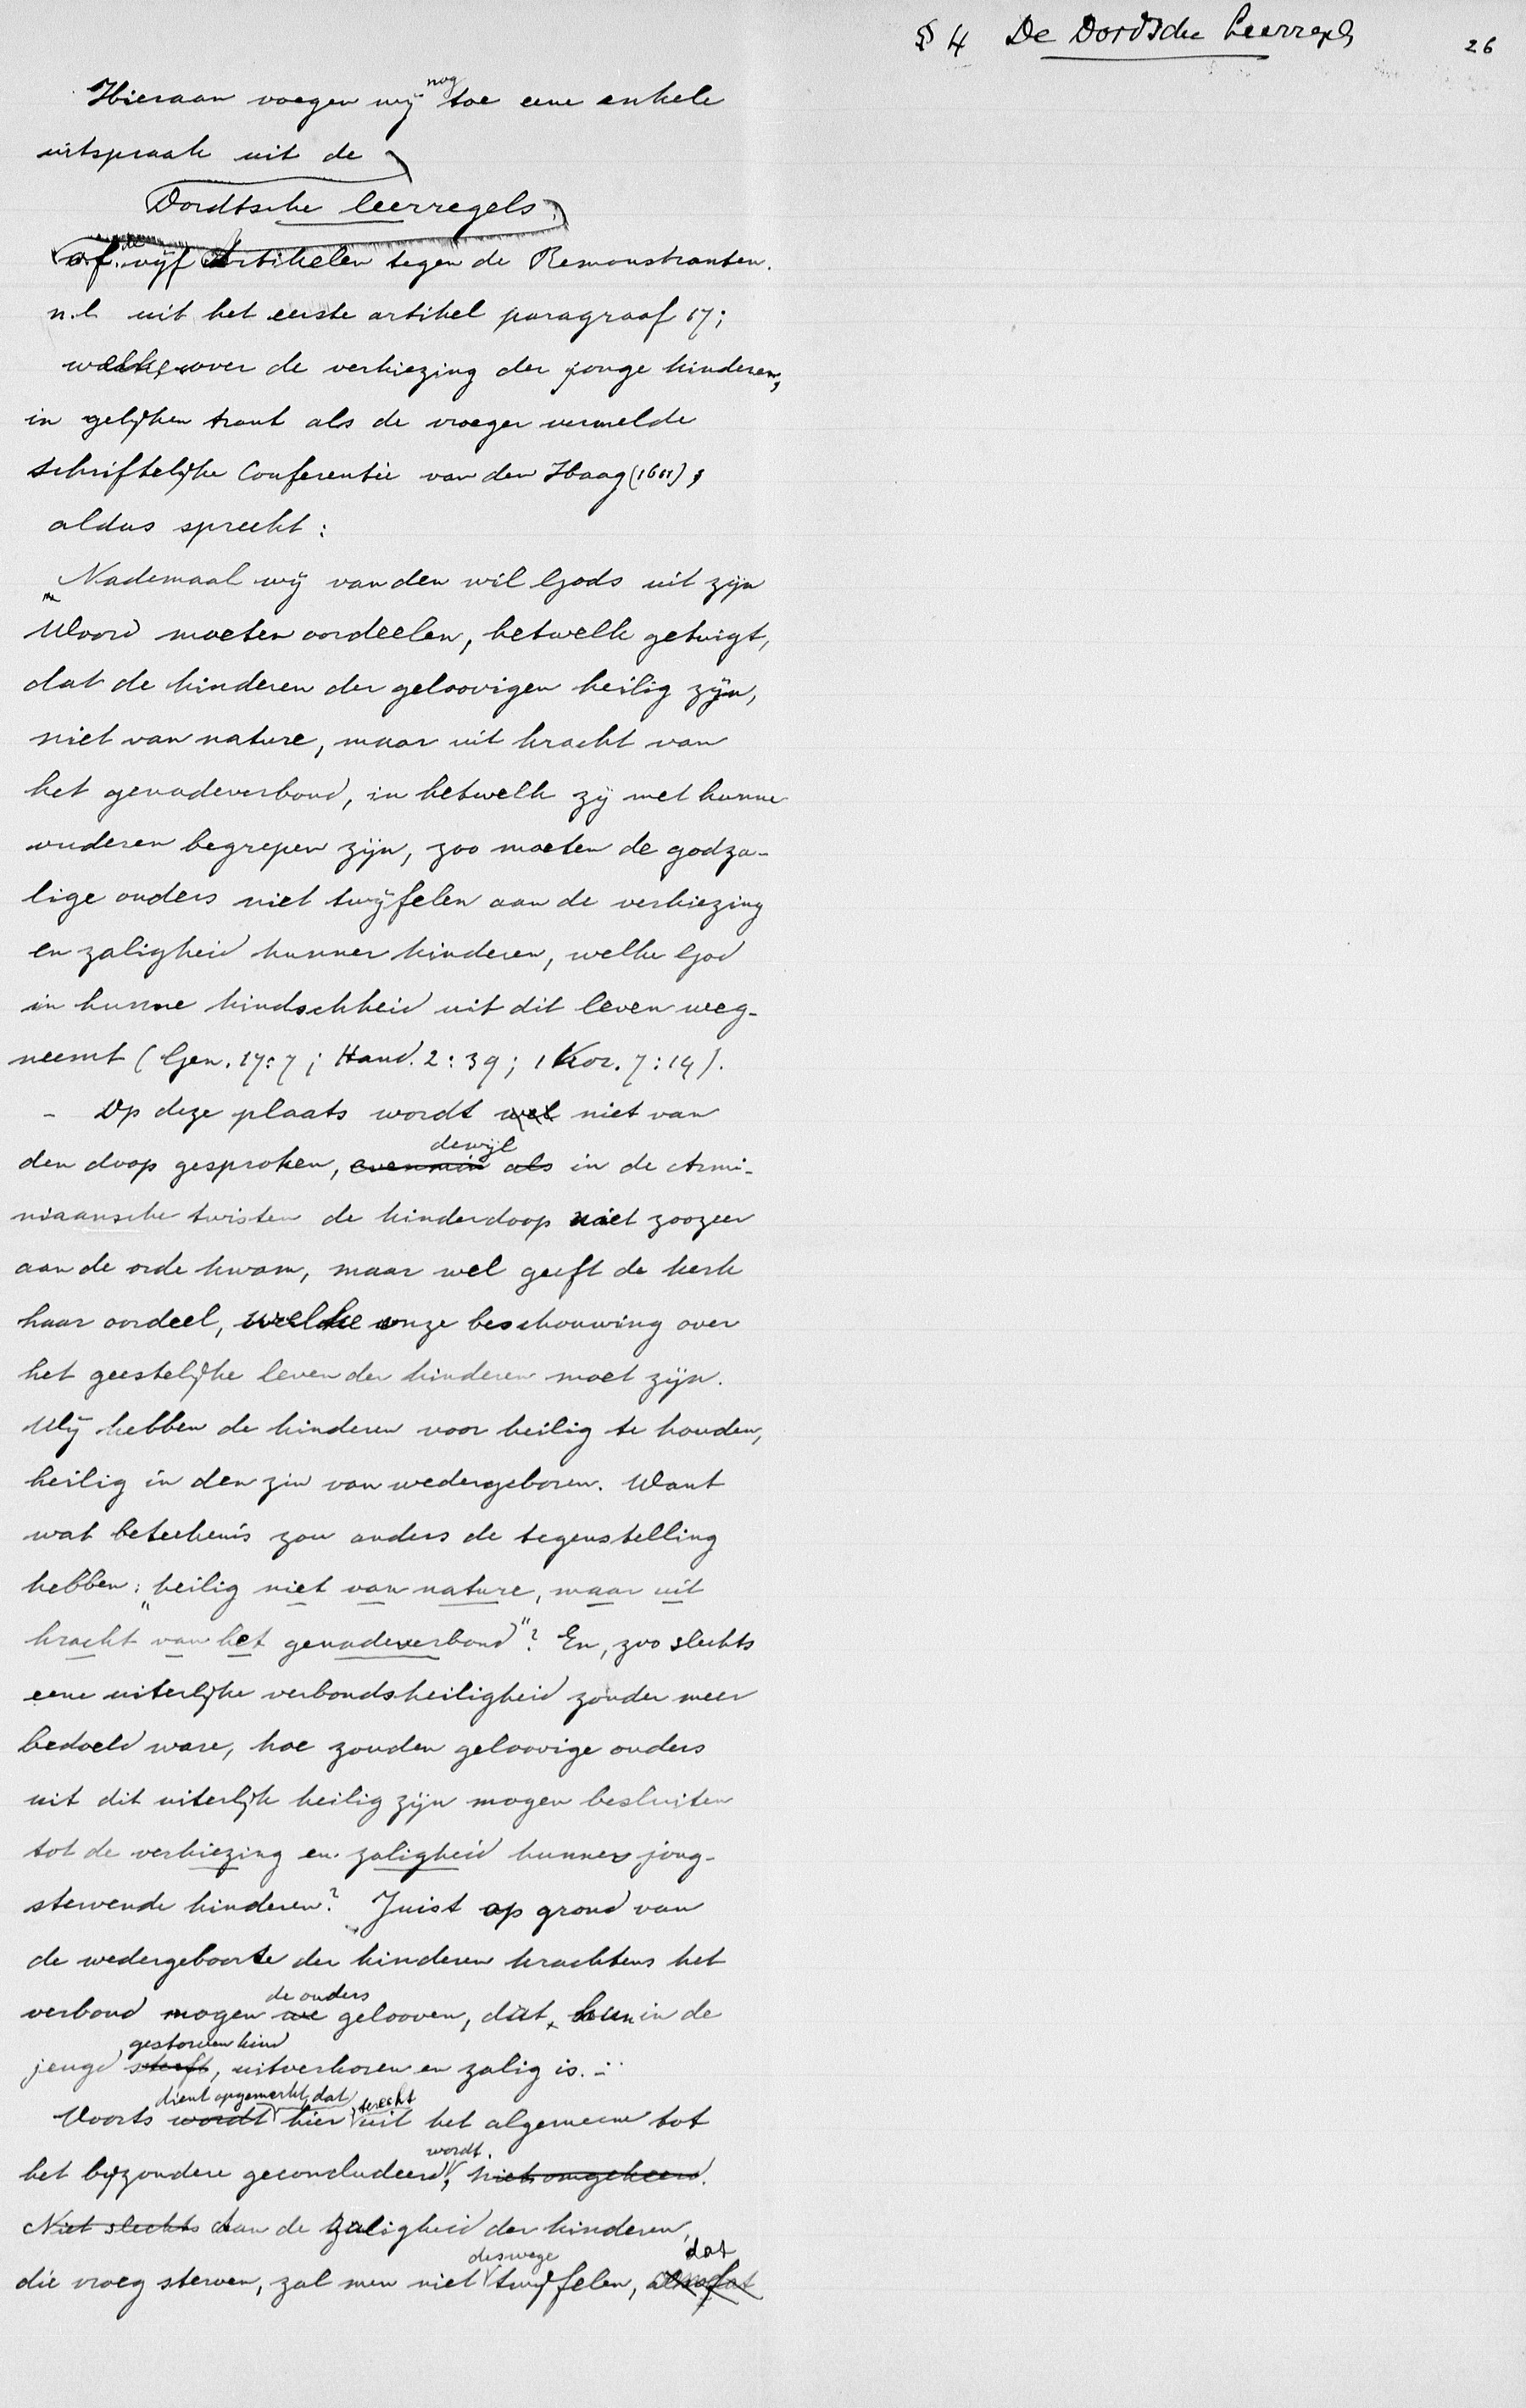 § 4 De Dordsche Leerregels
26
Hieraan voegen wij nog toe eene enkele
uitspraak uit de
Dordtsche leerregels.
of de vijf Artikelen tegen de Remonstranten.
n.l. uit het eerste artikel paragraaf 17;
welke over de verkiezing der jonge kinderen,
in gelijken trant als de vroeger vermelde
schriftelijke Conferentie van den Haag (1611),
aldus spreekt:
„Nademaal wij van den wil Gods uit zijn
Woord moeten oordeelen, hetwelk getuigt,
dat de kinderen der geloovigen heilig zijn,
niet van nature, maar uit kracht van
het genadeverbond, in hetwelk zij met hunne
ouderen begrepen zijn, zoo moeten de godza-
lige ouders niet twijfelen aan de verkiezing
en zaligheid hunner kinderen, welke God
in hunne kindschheid uit dit leven weg-
neemt (Gen. 17:7; Hand. 2:39; 1 Kor. 7:14).
- Op deze plaats wordt wel niet van
den doop gesproken, evenmin als dewijl in de Armi-
niaansche twisten de kinderdoop niet zoozeer
aan de orde kwam, maar wel geeft de kerk
haar oordeel, welke onze beschouwing over
het geestelijke leven der kinderen moet zijn.
Wij hebben de kinderen voor heilig te houden,
heilig in den zin van wedergeboren. Want
wat beteekenis zou anders de tegenstelling
hebben: „heilig niet van nature, maar uit
kracht van het genadeverbond"? En, zoo slechts
eene uiterlijke verbondsheiligheid zonder meer
bedoeld ware, hoe zouden geloovige ouders
uit dit uiterlijk heilig zijn mogen besluiten
tot de verkiezing en zaligheid hunner jong-
stervende kinderen? Juist op grond van
de wedergeboorte der kinderen krachtens het
verbond mogen we de ouders gelooven, dat hun in de
jeugd sterft gestorven kind, uitverkoren en zalig is.
Voorts wordt dient opgemerkt, dat hier terecht uit het algemeene tot
het bijzondere geconcludeerd wordt, niet omgekeerd.
Niet slechts Aan de zaligheid der kinderen,
die vroeg sterven, zal men niet deswege twijfelen, dat